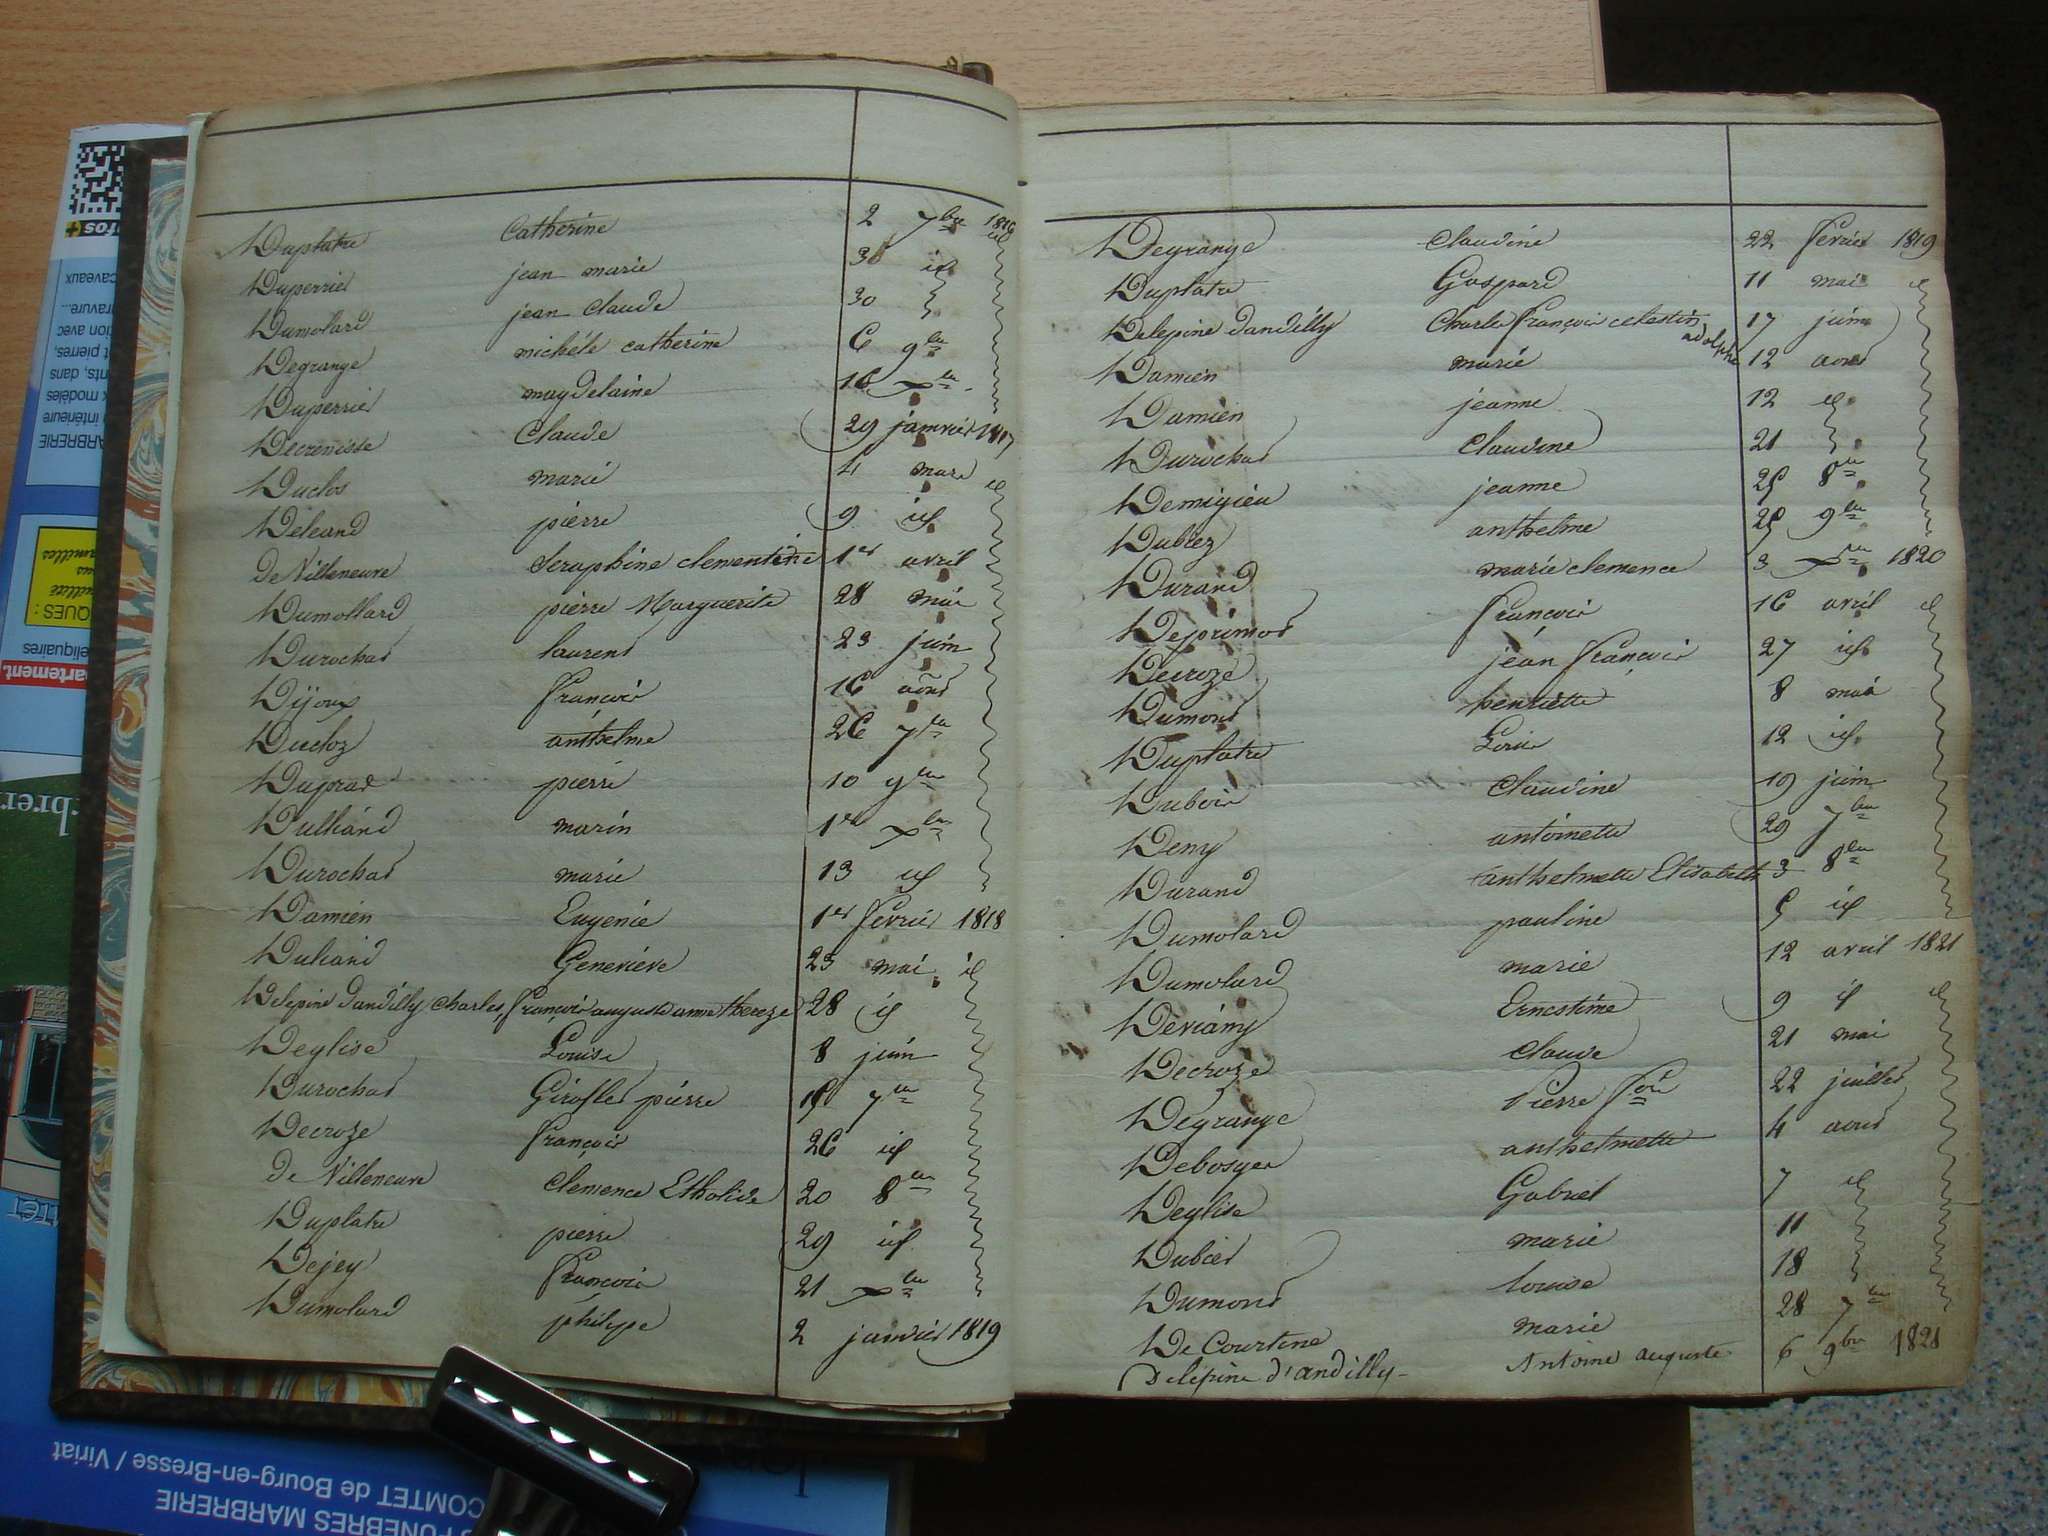 Duplatre Catherine 2 7bre 1816
Duperrier jean marie 30 id
Dumolard jean Claude 30
Degrange michéle catherine 6 9bre
Duperrier magdelaine 16 xbre
Decrenisse Claude 29 janvier 1817
Duclos marie 4 mars id
pierre 9 id
De Villeneuve Seraphine clementine 1er avril
Dumollard pierre Marguerite 28 mai
Durochat laurent 23 juin
Dijoux françois 16 août
Ducloz anthelme 26 7bre
Duprat pierre 10 9bre
Dulliand marin 1er xbre
Durochat marie 13 id
Damien Eugenie 1er fevrier 1818
Duliand Genevieve 23 mai id
Delepine Dandilly Charles, françois auguste anne thereze 28 id
Deglise Louise 8 juin
Durochat pierre 7bre
Decroze françois 26 id
De Villeneuve Clemence 20 8bre
Duplatre pierre 29 id
Dejey françois 21 xbre
Dumolard philippe 2 janvier 1819
Degrange Claudine 22 fevrier 1819
Duplatre Gaspard 11 mai id
Delepine Dandilly Charles françois celestin adolphe 17 juin
Damien marie 12 aout
Damien jeanne 12 id
Durochat Claudine 21
Demigieu jeanne 25 8bre
anthelme 25 9bre
Durand marie clemence 3 xbre 1820
Desprimot françois 16 avril id
Decroze jean françois 27 id
Dumont henriette 8 mai
Duplatre Louis 12 id
Dubois Claudine 19 juin
Deny antoinette 29 7bre
Durand anthelmette Elisabeth 3 8bre
Dumolard pauline 5 id
Dumolard marie 12 avril 1821
Ernestine 9 id id
Decroze claude 21 mai
Degrange Pierre 22 juillet
anthelmette 4 aout
Deglise Gabriel 7 id
marie 11
Dumont louise 18
De Courtine marie 28 7bre
Delépine d'andilly Antoine auguste 6 9bre 1821
FUNEBRES MARBRERIE
COMTET de Bourg-en-Bresse / Viriat